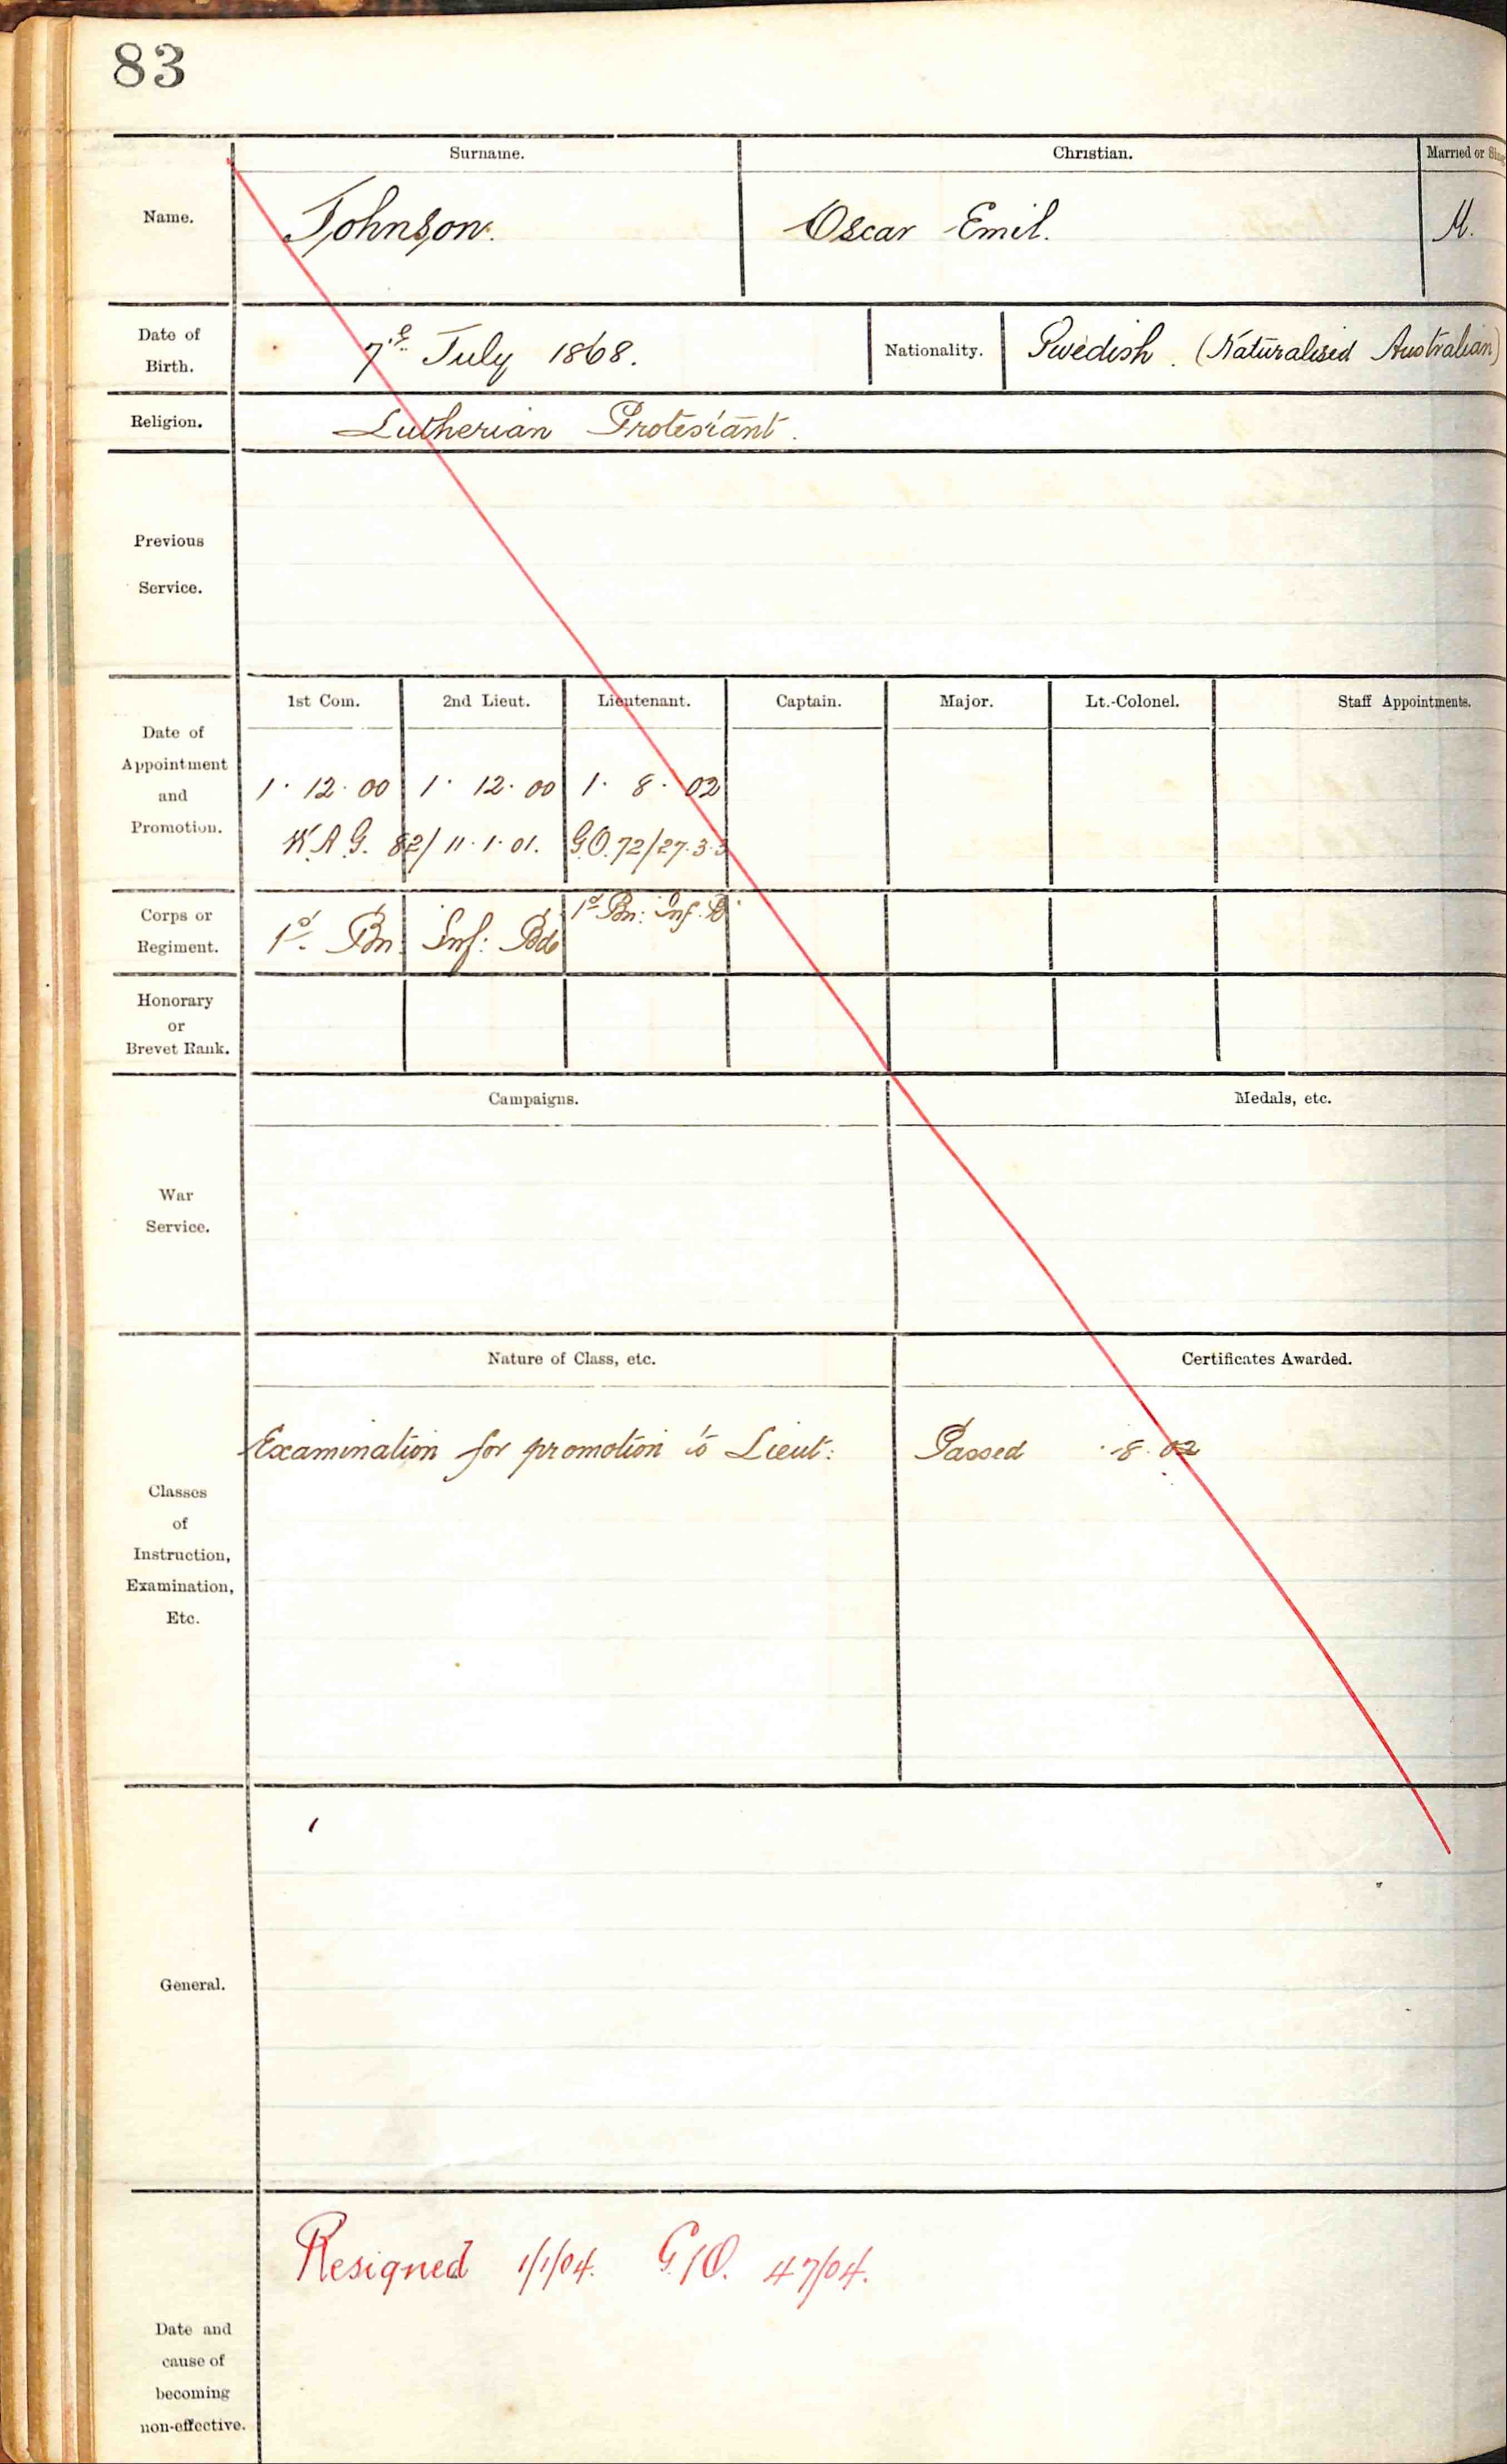 83
Surname. Christian. Married or
Name. Johnson. Oscar Emil. M.
Date of
Birth. 7th July 1868. Nationality. Swedish. (Naturalised Australian)
Religion. Lutherian Protestant.
Previous
Service.
1st Com. 2nd Lieut. Lieutenant. Captain. Major. Lt.-Colonel. Staff Appointments.
Date of
Appointment
and
Promotion.
1. 12. 00 1. 12. 00 1. 8. 02
W.A.G. 82/11.1.01. G.O. 72/27.3.3
Corps or
Regiment.
1st Bn Inf: Bde 1st Bn: Inf. B
Honorary
or
Brevet Rank.
Campaigns. Medals, etc.
War
Service.
Nature of Class, etc. Certificates Awarded.
Examination for promotion to Lieut: Passed .8.02
Classes
of
Instruction,
Examination,
Etc.
General.
Resigned 1/1/04. G/O. 47/04.
Date and
cause of
becoming
non-effective.